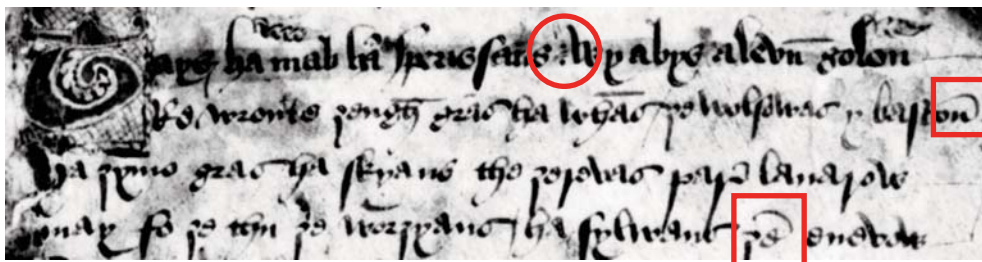 Tays ha mab hā speris sans wy abys a levn̄ golon
Re wronte ȝeugh gras ha whās ȝe wolsowas y basconn̄
Ha ȝymo gras ha skyans the ȝerevas par̄ lauarow
may fo ȝe thu ȝe worȝyans ha sylwans ȝē enevow